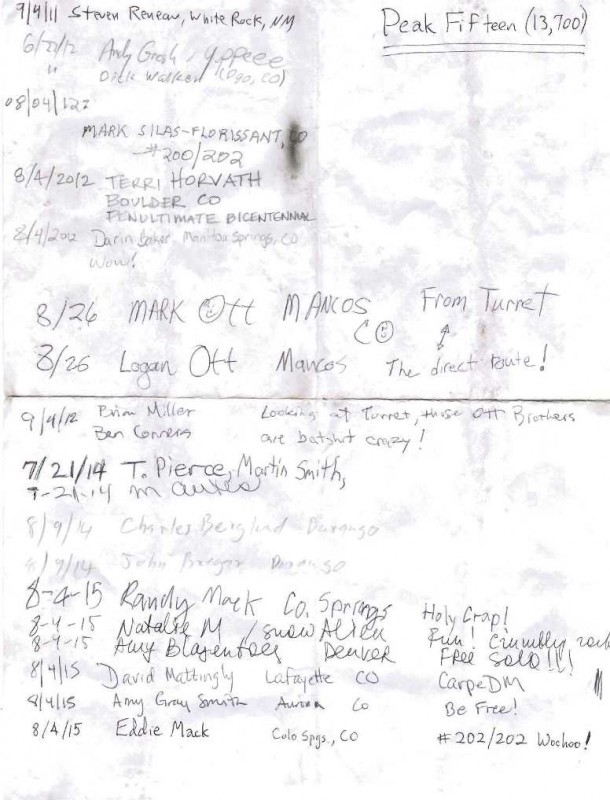 9/4/11 Steven Reneau, White Rock, NM
Peak Fifteen (13,700')
6/21/12 Andy Grosh, yippeee
" Dick Walker (Dgo, CO)
08/04/12
MARK SILAS-FLORISSANT, CO
#200/202
8/4/2012 TERRI HORVATH
BOULDER CO
PENULTIMATE BICENTENNIAL
8/4/2012 Darin Baker, Manitou Springs, CO
Wow!
8/26 MARK Ott MANCOS CO From Turret
8/26 Logan Ott Mancos The direct route!
9/4/12 Brian Miller Looking at Turret, those Ott Brothers
Ben Conners are batshit crazy!
7/21/14 T. Pierce, Martin Smith,
7-21-14 m
8/9/14 Charles Berglund Durango
8/9/14 John Durango
8-4-15 Randy Mack Co. Springs Holy Crap!
8-4-15 Natalie M / Snow Alien Fun! Crumbly rock
8-4-15 Amy Denver FREE Solo!!!
8/4/15 David Mattingly Lafayette CO CarpeDM
8/4/15 Amy Gray Smith Aurora Co Be Free!
8/4/15 Eddie Mack Colo Spgs., CO #202/202 Woohoo!